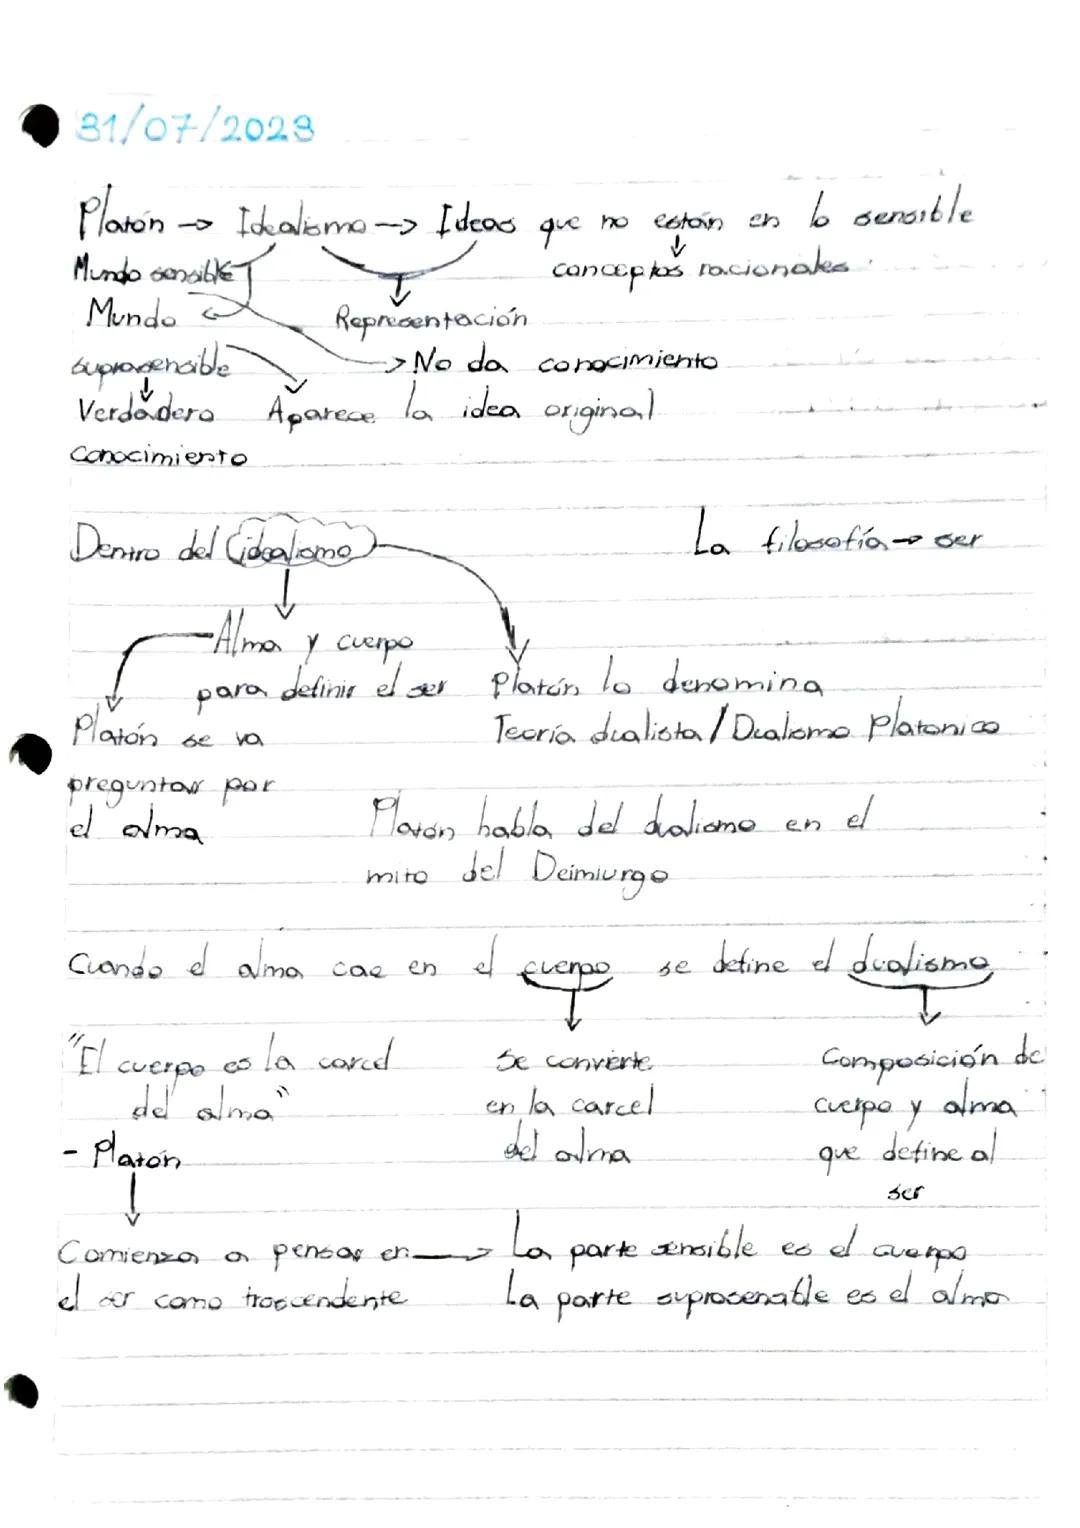 31/07/2023
Platón → Idealismo → Ideas que no están en lo sensible
Mundo sensible
conceptos racionales
Mundo
Representación
suprasensible
No da conocimiento
Verdadero
Aparece la idea original
conocimiento
Dentro del idealismo
La filosofía → ser
Alma y cuerpo
para definir el ser
Platón lo denomina
Platón se va
Teoría dualista / Dualismo Platonico
preguntar por
el alma
Platón habla del dualismo en el
mito del Deimiurgo
Cuando el alma cae en el cuerpo se define el dualismo
"El cuerpo es la carcel
del alma"
- Platón
Se convierte
en la carcel
del alma
Composición de
cuerpo y alma
que define al
ser
Comienza a pensar en → La parte sensible es el cuerpo
el ser como trascendente
La parte suprasensible es el alma